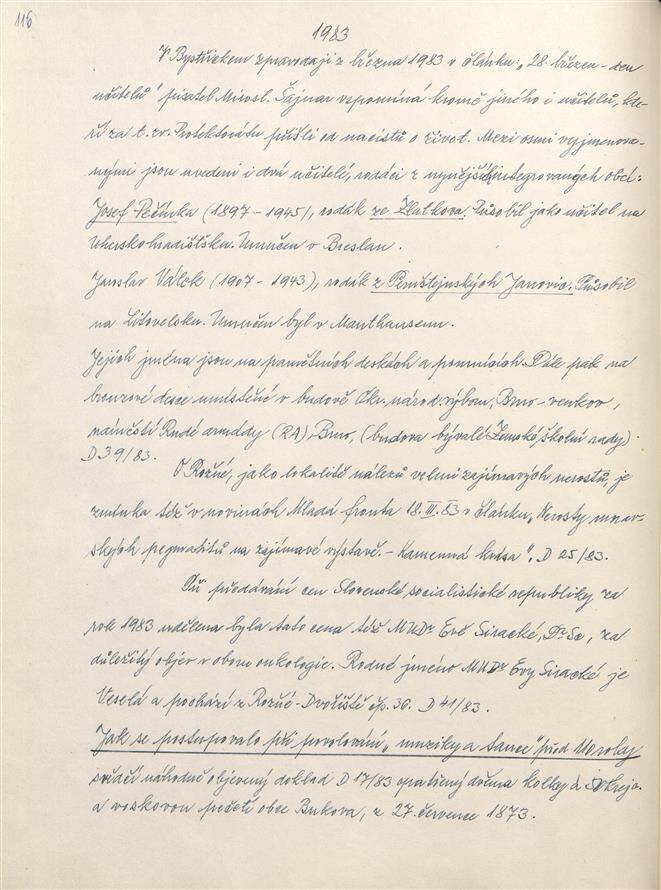 116
1983
V Bystřickém zpravodaji z března 1983 v článku: „28. březen - den
učitelů" pisatel Mirosl. Šajnar vzpomíná kromě jiného i učitelů, kte-
ří za t. zv. Protektorátu přišli od nacistů o život. Mezi osmi vyjmenova-
nými jsou uvedeni i dva učitelé, rodáci z nynějších integrovaných obcí:
Josef Pečinka (1897 - 1945), rodák ze Zlatkova. Působil jako učitel na
Uherskohradištsku. Umučen v Breslau.
Jaroslav Válek (1907 - 1943), rodák z Pernštejnských Janovic. Působil
na Litovelsku. Umučen byl v Mauthausenu.
Jejich jména jsou na pamětních deskách a pomnících. Dále pak na
bronzové desce umístěné v budově Okr. národ. výboru, Brno - venkov,
náměstí Rudé armády (RA), Brno, (budova bývalé Zemské školní rady)
D 39/83.
O Rožné, jako lokalitě nálezů velmi zajímavých nerostů, je
zmínka též v novinách Mladá fronta 18. III. 83 v článku „Nerosty morav-
ských pegmatitů na zajímavé výstavě. - Kamenná krása". D 25/83.
Při předávání cen Slovenské socialistické republiky za
rok 1983 udělena byla tato cena též MUDr Evě Siracké, Dr Sc, za
důležitý objev v oboru onkologie. Rodné jméno MUDr Evy Siracké je
Veselá a pochází z Rožné - Dvořiště čp. 36. D 41/83.
Jak se postupovalo při povolování „muziky a tance" před
svědčí náhodně objevený doklad D 17/83 opatřený dvěma kolky à
a voskovou pečetí obce Bukova, z 27. července 1873.